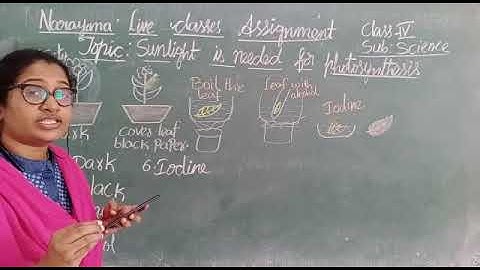 Narayana: Live classes Assignment Class-IV
Topic: Sunlight is needed for photosynthesis Sub: Science
Boil the leaf
Leaf with alcohol
Iodine
Dark
cover leaf black paper
Dark
6. Iodine